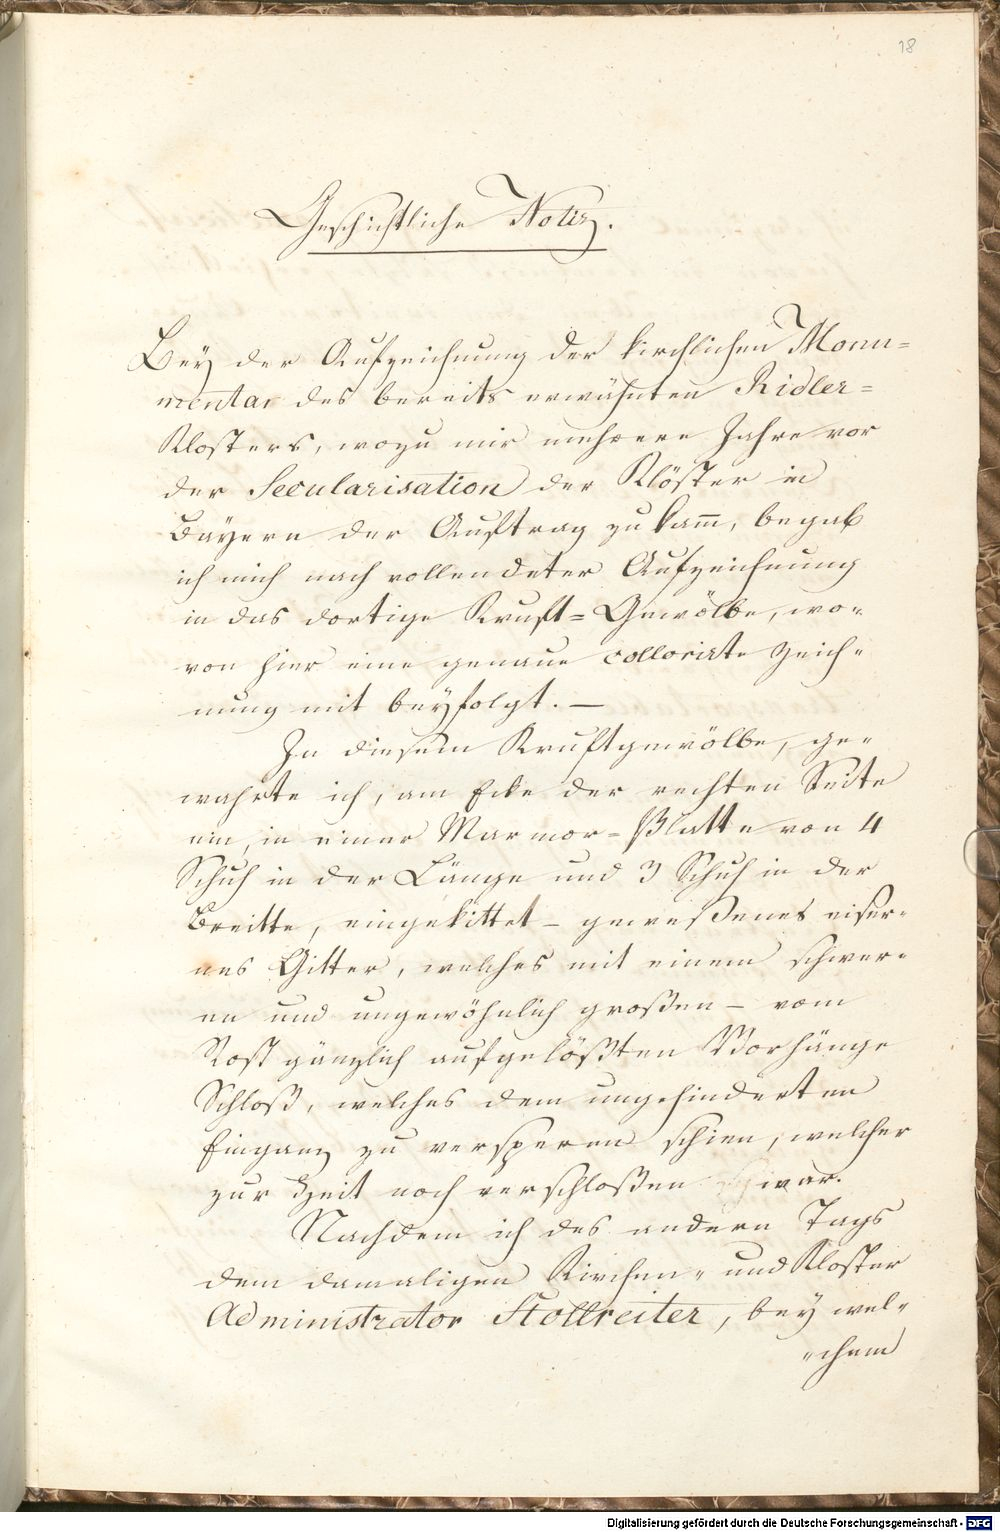 18
Geschichtliche Notiz.
Bey der Aufzeichnung der kirchlichen Monu=
mentar des bereits erwähnten Ridler=
Klosters, wozu mir mehrere Jahre vor
der Secularisation der Klöster in
Bayern der Auftrag zu kam̅, begab
ich mich nach vollendeter Aufzeichnung
in das dortige Kruft=Gewölbe, wo=
von hier eine genaue collorirte Zeich=
nung mit beyfolgt. —
In diesem Kruftgewölbe, ge=
wahrte ich, am Ecke der rechten Seite
ein, in einer Marmor=Platte von 4
Schuh in der Länge und 3 Schuh in der
Breitte, eingekittet – geweßenes eiser=
nes Gitter, welches mit einem schwer=
en und ungewöhnlich großen – vom
Rost gänzlich aufgelößten Vorhänge
Schloß, welches dem ungehinderten
Eingang zu versperren schien, welcher
zur Zeit noch verschloßen war.
Nachdem ich des andern Tags
dem damaligen Kirchen= und Kloster
Administrator Stollreiter, bey wel=
=chem
Digitalisierung gefördert durch die Deutsche Forschungsgemeinschaft - DFG